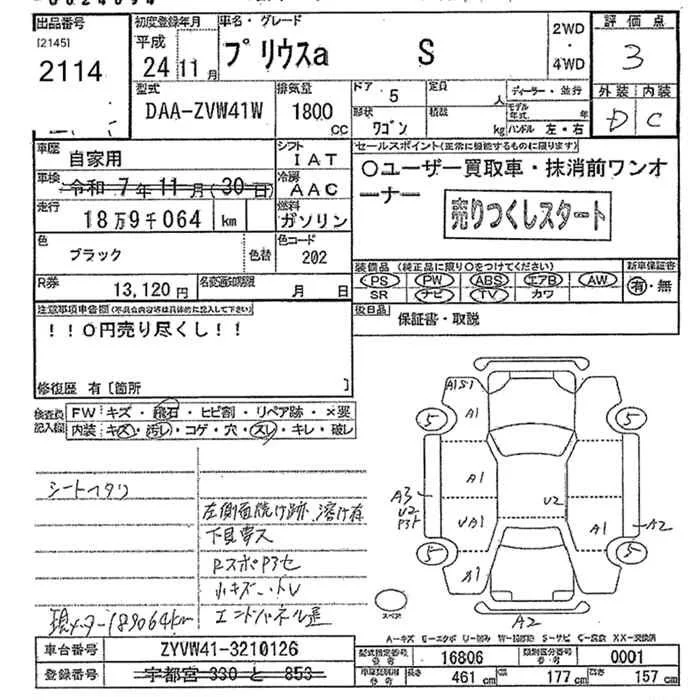 出品番号
[2145]
2114
初度登録年月
平成
24 11月
車名・グレード
プリウスa S
2WD
・
4WD
評価点
3
外装 内装
D C
型式
DAA-ZVW41W
排気量
1800
CC
ドア 5
定員
人
形状
ワゴン
積載
kg
ディーラー・並行
モデル年式
年
ハンドル 左・右
車歴
自家用
シフト
IAT
車検
令和 7年 11月(30日)
冷房
AAC
走行
18万9千064 km
燃料
ガソリン
色
ブラック
色替
色コード
202
R券
13,120円
名変通知期限
月 日
セールスポイント(正常に機能するものに限ります)
〇ユーザー買取車・抹消前ワンオ
ーナー
売りつくしスタート
装備品(純正品に限り〇をつけてください)
PS PW ABS エアB AW
SR ナビ TV カワ
新車保証書
有・無
後日品
保証書・取説
注意事項申告欄(不具合内容等は具体的に記入して下さい)
!!0円売り尽くし!!
修復歴 有[箇所 ]
検査員記入欄
FW キズ・飛石・ヒビ割・リペア跡・×要
内装 キズ・汚レ・コゲ・穴・スレ・キレ・破レ
シートヘタリ
左側面焼け跡、溶け有
下見要ス
RスポP3セ
小キズ・凹レ
エンドパネル歪
現メーター189064km
A1S1
A1
5
5
A1
A3
U2
U2
UA1
A1
A2
5
5
A1
スペア
A2
A−キズ E−エクボ U−凹み W−補修跡 S−サビ C−腐食 XX−交換済
車台番号
ZYVW41-3210126
登録番号
宇都宮 330 と 853
型式指定番号
16806
類別区分番号
0001
長さ 461 cm
幅 177 cm
高さ 157 cm